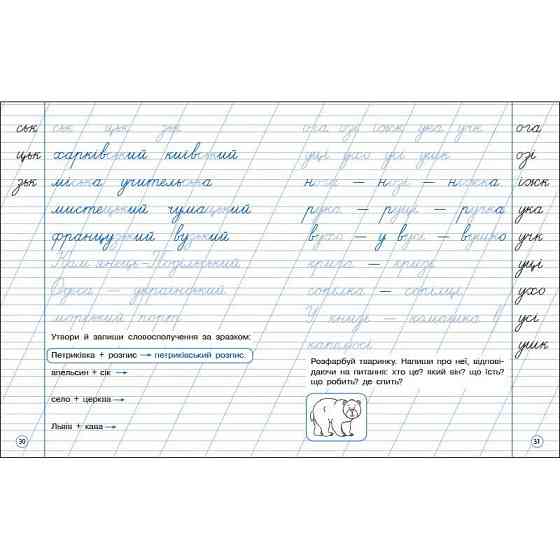 ськ ськ цьк зьк
цьк харківський київський
зьк міська учительська
мистецький чумацький
французький вузький
Кам'янець-Подільський
Одеса — український
морський порт
Утвори й запиши словосполучення за зразком:
Петриківка + розпис → петриківський розпис.
апельсин + сік →
село + церква →
Львів + кава →
30
ога озі іжк ука учк ога
уці ухо усі ушк озі
нога — нозі — ніжка іжк
рука — руці — ручка ука
вухо — у вусі — вушко учк
уці
сопілка — сопілці ухо
У книзі — комашка усі
капелюсі ушк
Розфарбуй тваринку. Напиши про неї, відпові-
даючи на питання: хто це? який він? що їсть?
що робить? де спить?
31